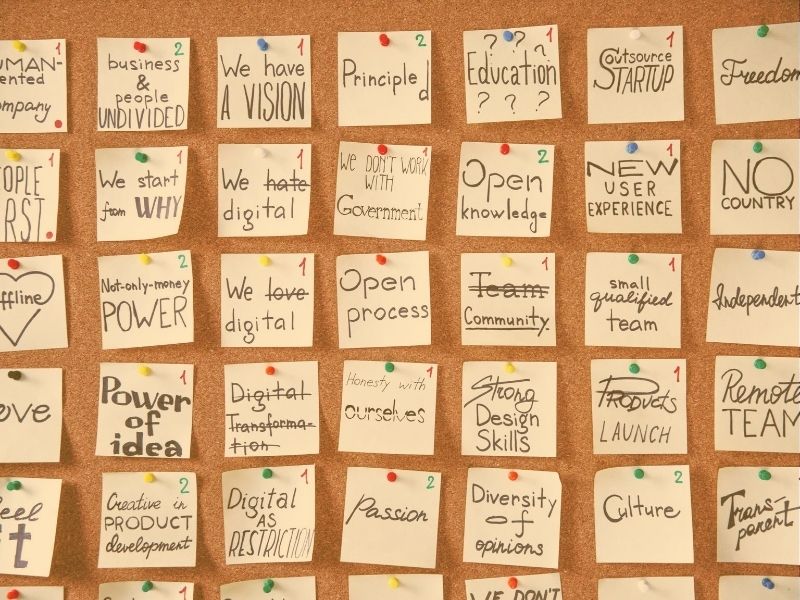 UMAN-
ented
ompany
1
business
&
people
UNDIVIDED
2
We have
A VISION
1
Principle
d
2
? ? ?
Education
? ? ?
1
Outsource
STARTUP
1
Freedom
OPLE
RST.
1
We start
from WHY
1
We hate
digital
1
WE DON'T WORK
WITH
Government
1
Open
knowledge
2
NEW
USER
EXPERIENCE
1
NO
COUNTRY
ffline
Not-only-money
POWER
2
We love
digital
1
Open
process
Team
Community
1
small
qualified
team
1
Independent
ove
Power
of
idea
1
Digital
Transforma-
tion
Honesty with
ourselves
1
Strong
Design
Skills
Products
LAUNCH
1
Remote
TEAM
eel
it
2
Creative in
PRODUCT
development
2
Digital
AS
RESTRICTION
1
Passion
2
Diversity
of
opinions
Culture
2
Trans-
parent
1
1
WE DON'T